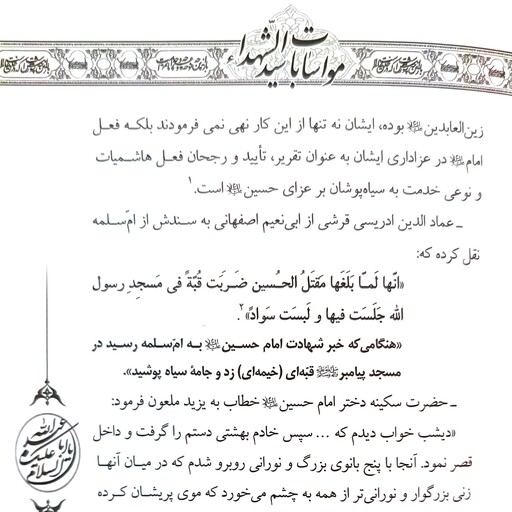 مواسات با سیدالشهداء
زین‌العابدین بوده، ایشان نه تنها از این کار نهی نمی فرمودند بلکه فعل
امام در عزاداری ایشان به عنوان تقریر، تأیید و رجحان فعل هاشمیات
و نوعی خدمت به سیاه‌پوشان بر عزای حسین است.۱
ـ عماد الدین ادریسی قرشی از ابی‌نعیم اصفهانی به سندش از امّ‌سلمه
نقل کرده که:
«انّها لَمـّا بَلَغَها مَقتَلُ الحـُسین ضَـرَبَت قُبّةً فی مَسجِدِ رسول
الله جَلَسَت فیها و لَبِسَت سَواداً».۲
«هنگامی‌که خبر شهادت امام حسـین بـه امّ‌سلمه رسـید در
مسجد پیامبر قبّه‌ای (خیمه‌ای) زد و جامهٔ سیاه پوشید».
ـ حضرت سکینه دختر امام حسین خطاب به یزید ملعون فرمود:
«دیشب خواب دیدم که ... سپس خادم بهشتی دستم را گرفت و داخل
قصر نمود. آنجا با پنج بانوی بزرگ و نورانی روبرو شدم که در میان آنهـا
زنی بزرگوار و نورانی‌تر از همه به چشم می‌خورد که موی پریشان کرده